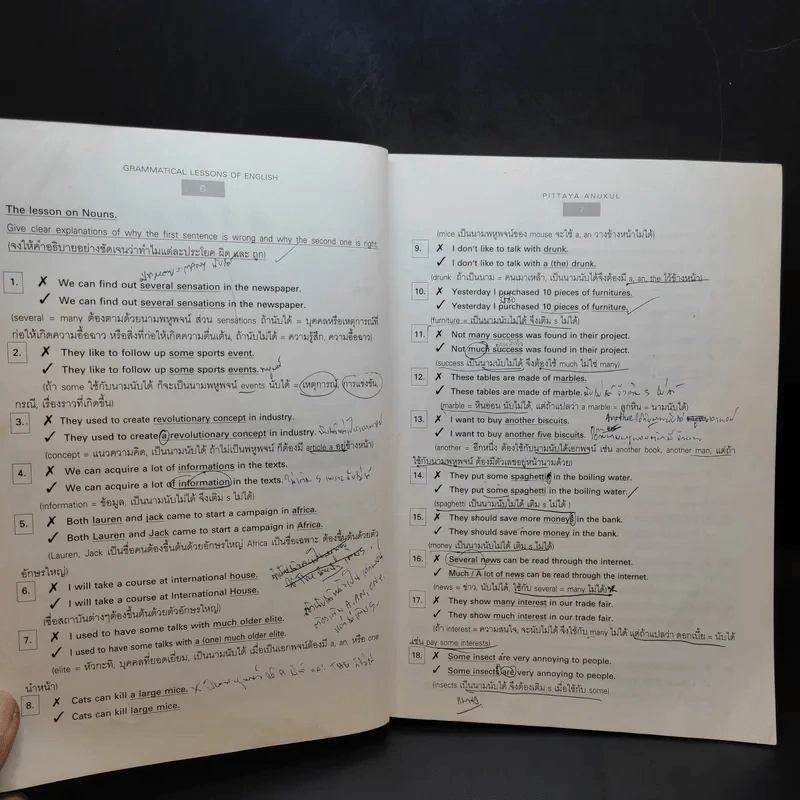 GRAMMATICAL LESSONS OF ENGLISH
6
The lesson on Nouns.
Give clear explanations of why the first sentence is wrong and why the second one is right.
(จงให้คำอธิบายอย่างชัดเจนว่าทำไมแต่ละประโยค ผิด และ ถูก)
1. ✗ We can find out several sensation in the newspaper.
✓ We can find out several sensations in the newspaper.
(several = many ต้องตามด้วยนามพหูพจน์ ส่วน sensations ถ้านับได้ = บุคคลหรือเหตุการณ์ที่
ก่อให้เกิดความอื้อฉาว หรือสิ่งที่ก่อให้เกิดความตื่นเต้น, ถ้านับไม่ได้ = ความรู้สึก, ความอื้อฉาว)
2. ✗ They like to follow up some sports event.
✓ They like to follow up some sports events.
(ถ้า some ใช้กับนามนับได้ ก็จะเป็นนามพหูพจน์ events นับได้ = เหตุการณ์, การแข่งขัน,
กรณี, เรื่องราวที่เกิดขึ้น)
3. ✗ They used to create revolutionary concept in industry.
✓ They used to create a revolutionary concept in industry.
(concept = แนวความคิด, เป็นนามนับได้ ถ้าไม่เป็นพหูพจน์ ก็ต้องมี article a อยู่ข้างหน้า)
4. ✗ We can acquire a lot of informations in the texts.
✓ We can acquire a lot of information in the texts.
(information = ข้อมูล, เป็นนามนับไม่ได้ จึงเติม s ไม่ได้)
5. ✗ Both lauren and jack came to start a campaign in africa.
✓ Both Lauren and Jack came to start a campaign in Africa.
(Lauren, Jack เป็นชื่อคนต้องขึ้นต้นด้วยอักษรใหญ่ Africa เป็นชื่อเฉพาะ ต้องขึ้นต้นด้วยตัว
อักษรใหญ่)
6. ✗ I will take a course at International house.
✓ I will take a course at International House.
(ชื่อสถาบันต่างๆต้องขึ้นต้นด้วยตัวอักษรใหญ่)
7. ✗ I used to have some talks with much older elite.
✓ I used to have some talks with a (one) much older elite.
(elite = หัวกะทิ, บุคคลที่ยอดเยี่ยม, เป็นนามนับได้ เมื่อเป็นเอกพจน์ต้องมี a, an, หรือ one
นำหน้า)
8. ✗ Cats can kill a large mice.
✓ Cats can kill large mice.
PITTAYA ANUKUL
7
(mice เป็นนามพหูพจน์ของ mouse จะใช้ a, an วางข้างหน้าไม่ได้)
9. ✗ I don't like to talk with drunk.
✓ I don't like to talk with a (the) drunk.
(drunk ถ้าเป็นนาม = คนเมาเหล้า, เป็นนามนับได้จึงต้องมี a, an, the ไว้ข้างหน้า)
10. ✗ Yesterday I purchased 10 pieces of furnitures.
✓ Yesterday I purchased 10 pieces of furniture.
(furniture = เป็นนามนับไม่ได้ จึงเติม s ไม่ได้)
11. ✗ Not many success was found in their project.
✓ Not much success was found in their project.
(success เป็นนามนับไม่ได้ จึงต้องใช้ much ไม่ใช่ many)
12. ✗ These tables are made of marbles.
✓ These tables are made of marble.
(marble = หินอ่อน นับไม่ได้, แต่ถ้าแปลว่า a marble = ลูกหิน = นามนับได้)
13. ✗ I want to buy another biscuits.
✓ I want to buy another five biscuits.
(another = อีกหนึ่ง ต้องใช้กับนามนับได้เอกพจน์ เช่น another book, another man, แต่ถ้า
ใช้กับนามพหูพจน์ ต้องมีตัวเลขอยู่หน้านามด้วย)
14. ✗ They put some spaghettis in the boiling water.
✓ They put some spaghetti in the boiling water.
(spaghetti เป็นนามนับไม่ได้ เติม s ไม่ได้ )
15. ✗ They should save more moneys in the bank.
✓ They should save more money in the bank.
(money เป็นนามนับไม่ได้ เติม s ไม่ได้)
16. ✗ Several news can be read through the internet.
✓ Much / A lot of news can be read through the internet.
(news = ข่าว, นับไม่ได้, ใช้กับ several = many ไม่ได้)
17. ✗ They show many interest in our trade fair.
✓ They show much interest in our trade fair.
(ถ้า interest = ความสนใจ, จะนับไม่ได้ จึงใช้กับ many ไม่ได้ แต่ถ้าแปลว่า ดอกเบี้ย = นับได้
เช่น pay some interests)
18. ✗ Some insect are very annoying to people.
✓ Some insects are very annoying to people.
(insects เป็นนามนับได้ จึงต้องเติม s เมื่อใช้กับ some)